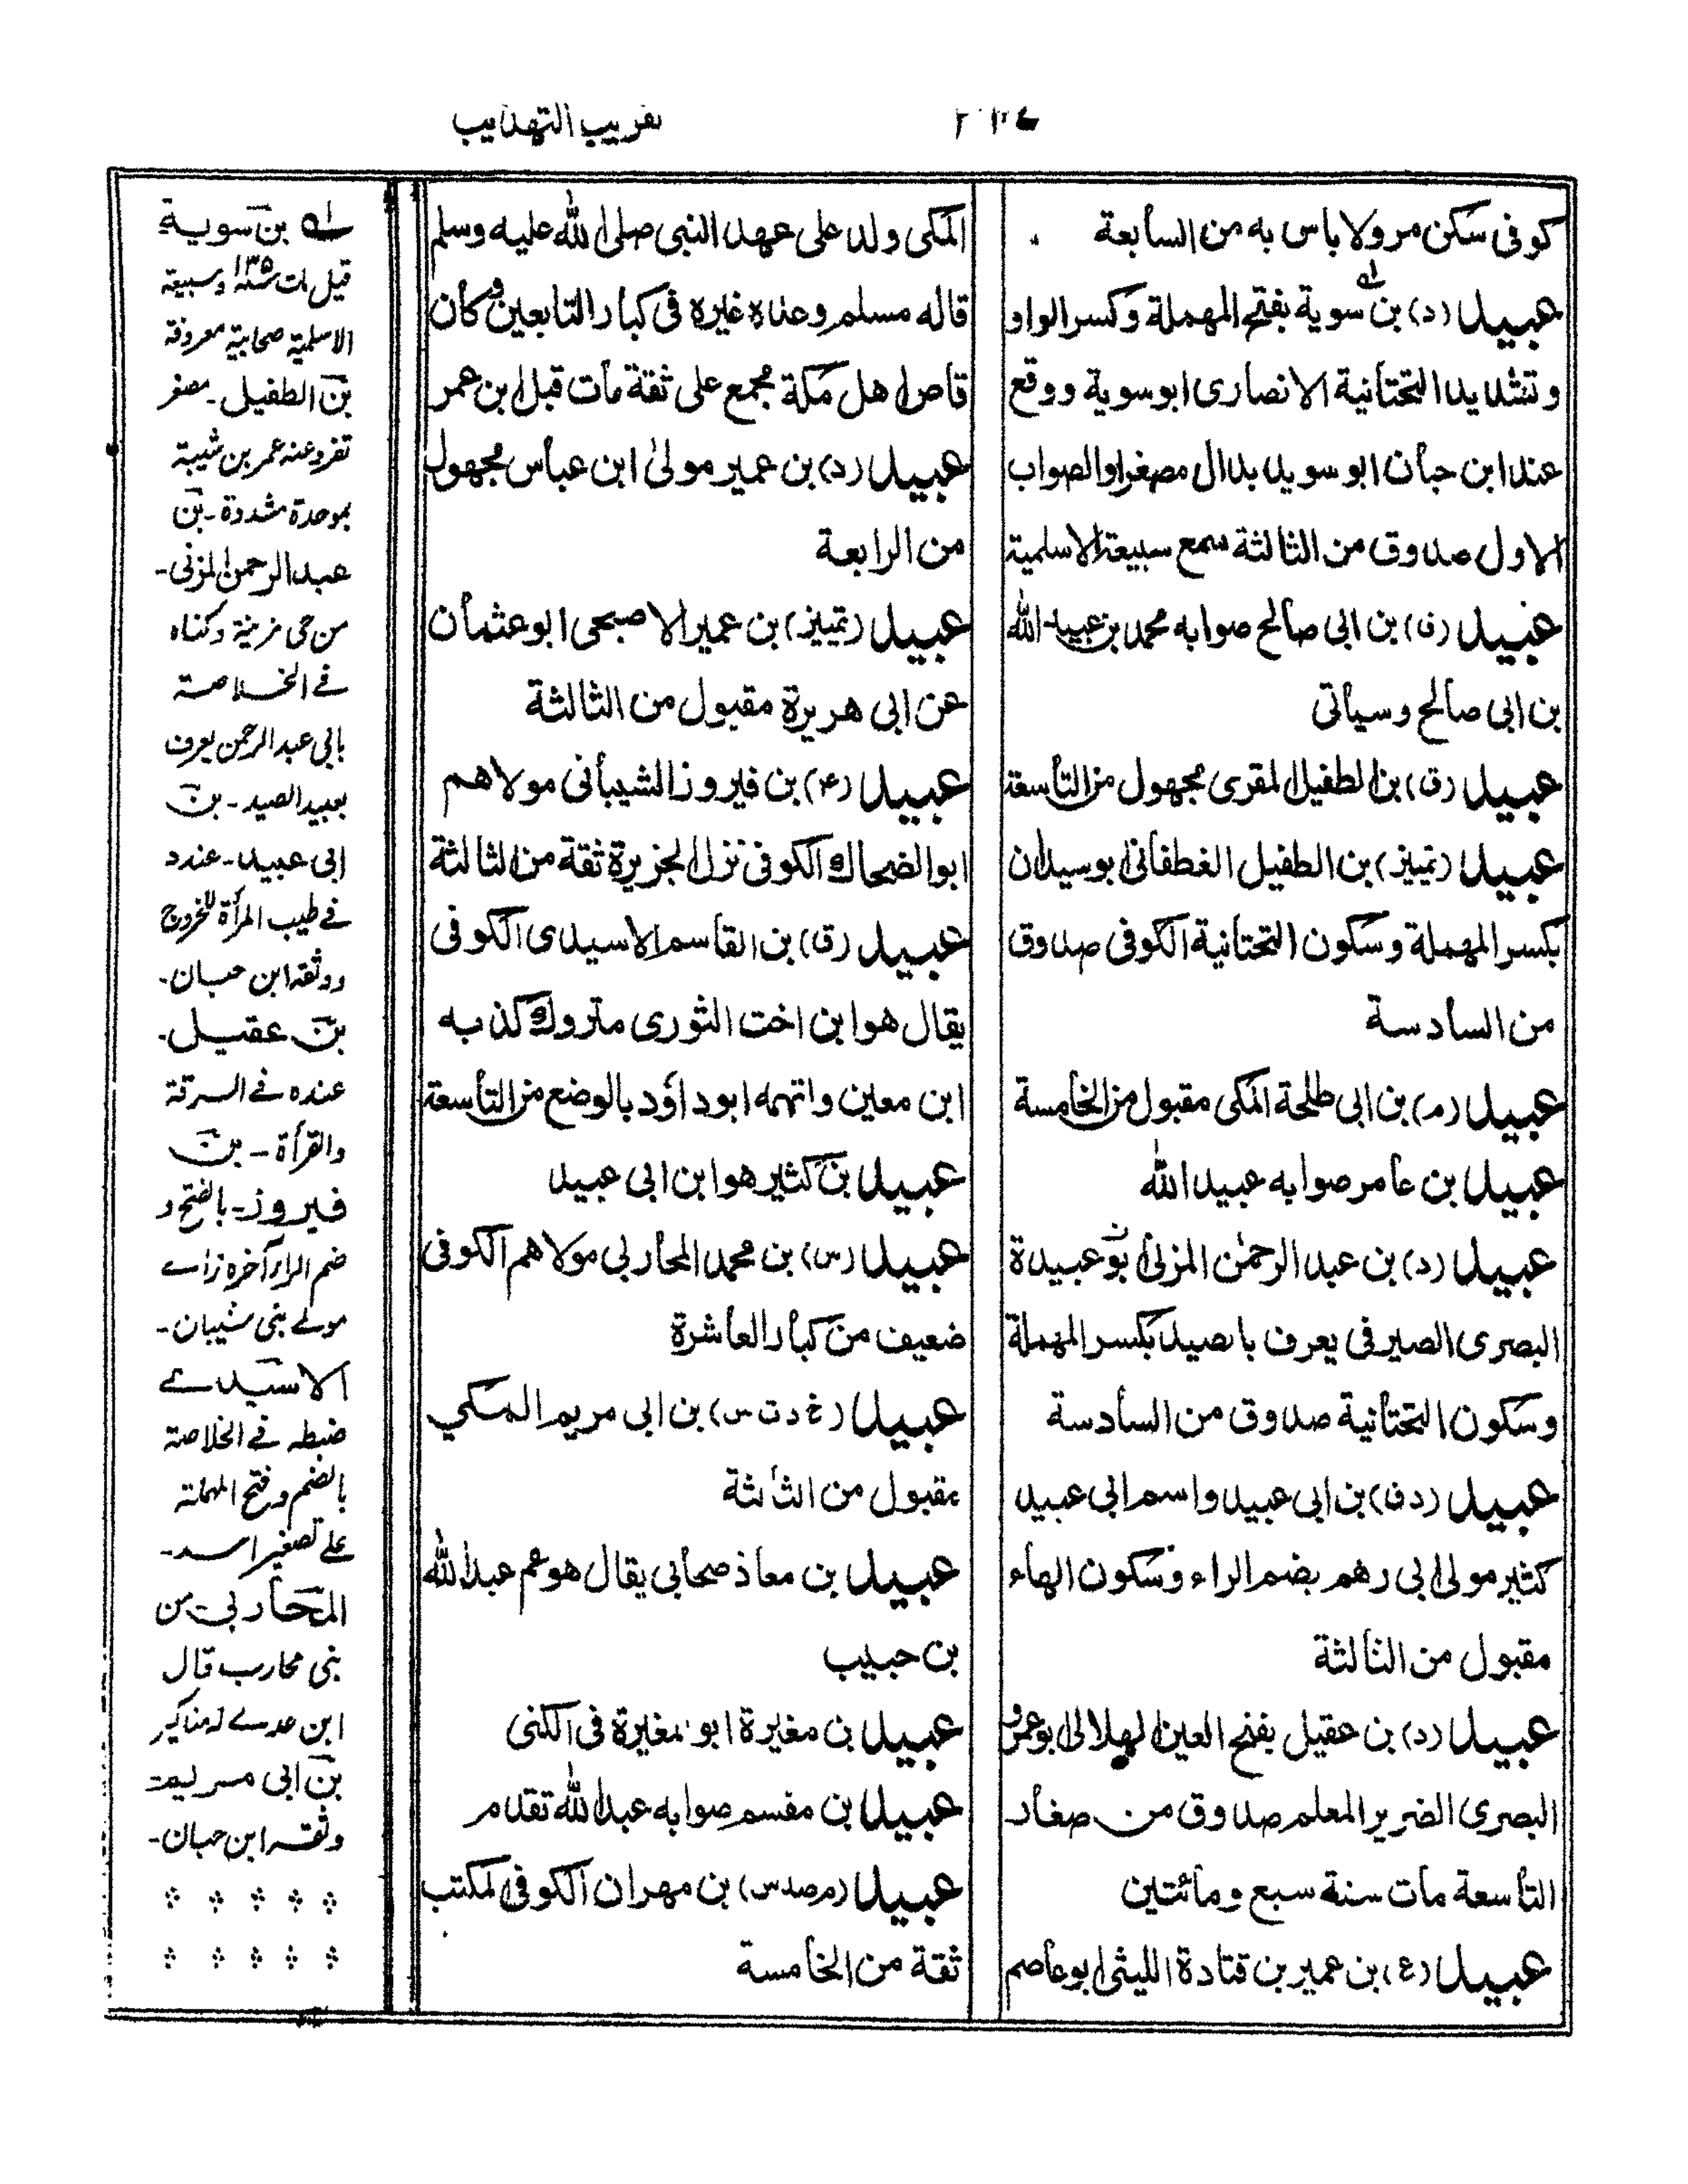 تقريب التهذيب
كوفى سكن مرو لا باس به من السابعة
عبيد (د) بن سوية بفتح المهملة وكسر الواو
وتشديد التحتانية الانصارى ابو سوية ووقع
عند ابن حبان ابو سويد بدال مصغرا والصواب
الاول صدوق من الثالثة سمع سبيعة الاسلمية
عبيد (ق) بن ابى صالح صوابه محمد بن عبيد الله
بن ابى صالح وسياتى
عبيد (ق) بن الطفيل المقرى مجهول من التاسعة
عبيد (تمييز) بن الطفيل الغطفانى ابو سيدان
بكسر المهملة وسكون التحتانية الكوفى صدوق
من السادسة
عبيد (م) بن ابى طلحة المكى مقبول من الخامسة
عبيد بن عامر صوابه عبيد الله
عبيد (د) بن عبد الرحمن المزنى ابو عبيدة
البصرى الصيرفى يعرف بالصيد بكسر المهملة
وسكون التحتانية صدوق من السادسة
عبيد (د ق) بن ابى عبيد واسم ابى عبيد
كثير مولى ابى رهم بضم الراء وسكون الهاء
مقبول من الثالثة
عبيد (د) بن عقيل بفتح العين الهلالى ابو عمرو
البصرى الضرير المعلم صدوق من صغار
التاسعة مات سنة سبع ومائتين
عبيد (ع) بن عمير بن قتادة الليثى ابو عاصم
المكى ولد على عهد النبى صلى الله عليه وسلم
قاله مسلم وعده غيره فى كبار التابعين وكان
قاص اهل مكة مجمع على ثقة مات قبل ابن عمر
عبيد (د) بن عمير مولى ابن عباس مجهول
من الرابعة
عبيد (تمييز) بن عمير الاصبحى ابو عثمان
عن ابى هريرة مقبول من الثالثة
عبيد (٤) بن فيروز الشيبانى مولاهم
ابو الضحاك الكوفى نزل الجزيرة ثقة من الثالثة
عبيد (ق) بن القاسم الاسيدى الكوفى
يقال هو ابن اخت الثورى متروك كذبه
ابن معين واتهمه ابو داؤد بالوضع من التاسعة
عبيد بن كثير هو ابن ابى عبيد
عبيد (س) بن محمد المحاربى مولاهم الكوفى
ضعيف من كبار العاشرة
عبيد (خ د ت س) بن ابى مريم المكي
مقبول من الثالثة
عبيد بن معاذ صحابى يقال هو عم عبد الله
بن حبيب
عبيد بن مغيرة ابو المغيرة فى الكنى
عبيد بن مقسم صوابه عبد الله تقدم
عبيد (م صد س) بن مهران الكوفى المكتب
ثقة من الخامسة
له بن سوية
قيل مات سنة ١٣٥ وسبيعة
الاسلمية صحابية معروفة
بن الطفيل ـ مصغر
تفرد عنه عمر بن شيبة
بموحدة مشددة ـ بن
عبد الرحمن المزنى ـ
من حى مزينة وكناه
فے الخلاصة
بابي عبد الرحمن يعرف
بعبيد الصيد ـ بن
ابى عبيد ـ عند د
فے طيب المرأة للخروج
ووثقه ابن حبان ـ
بن عقيل ـ
عنده فے السرقة
والقرأة ـ بن
فيروز ـ بالفتح و
ضم الراء آخره زاے
مولے بنى شيبان ـ
الاسيدے
ضبطه فے الخلاصة
بالضم وفتح المهملة
علے تصغير اسد ـ
المحاربى من
بنى محارب قال
ابن عدے له مناكير
بن ابى مريم
وثقه ابن حبان ـ